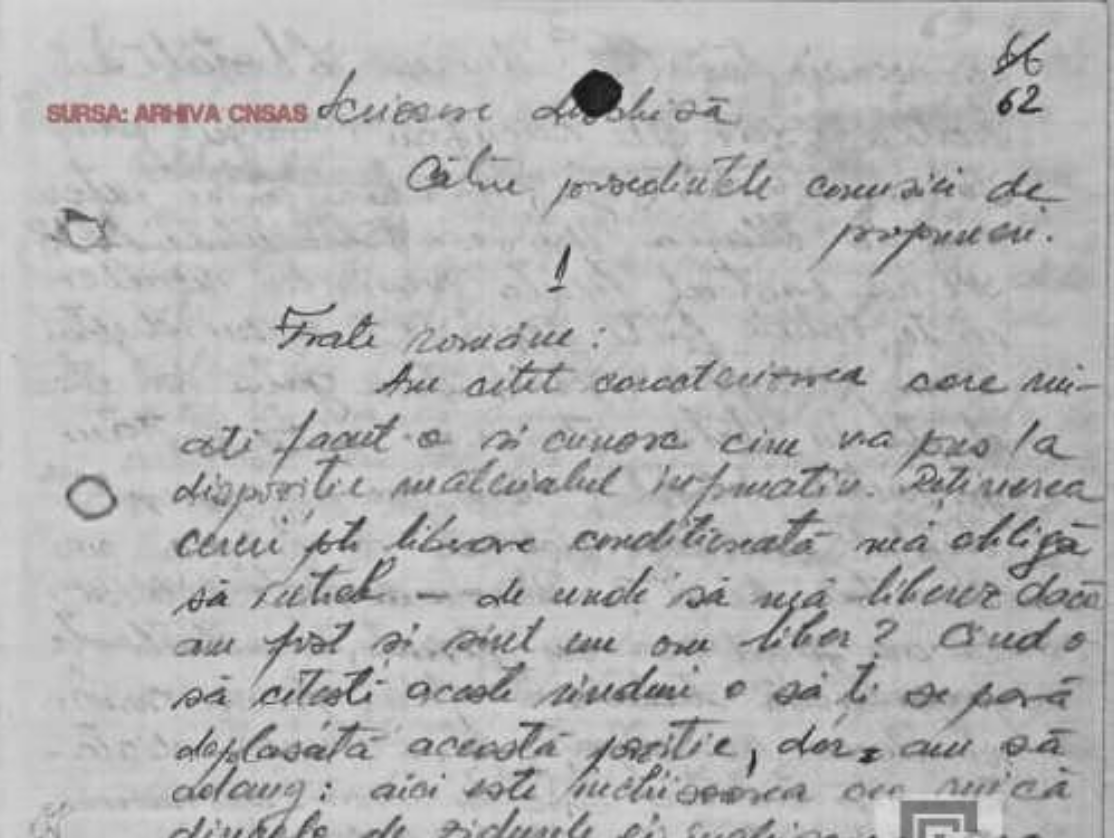 66
62
SURSA: ARHIVA CNSAS Scrisoare deschisă
Către președintele comisiei de
propuneri.
1
Frate române:
Am citit caracterizarea care mi-
ati facut-o si cunosc cine v-a pus la
dispozitie materialul informativ. Retinerea
cererii ptr liberare conditionată mă obligă
să intreb — de unde să mă liberez dacă
am fost si sint un om liber? Cind o
să citesti aceste rinduri o să ti se pară
deplasată această pozitie, dar, am să
adaug: aici este inchisoarea cea mică
dincolo de zidurile ei